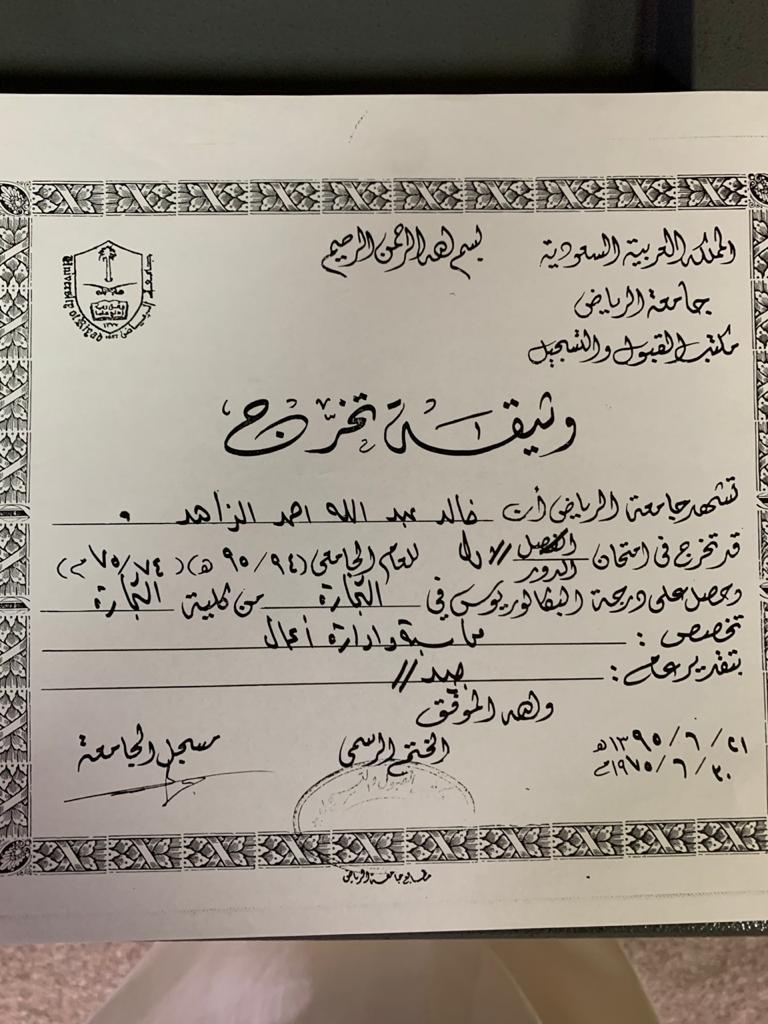 المملكة العربية السعودية
بسم الله الرحمن الرحيم
جامعة الرياض
مكتب القبول والتسجيل
University of Riyad
وثيقة تخرج
تشهد جامعة الرياض أن خالد عبد الله احمد الزاهد .
قد تخرج في امتحان الفصل / الدور للعام الجامعي (٩٤/ ٩٥ هـ) (٧٤/ ٧٥ م)
وحصل على درجة البكالوريوس في التجارة من كلية التجارة
تخصص : محاسبة وادارة أعمال
بتقدير عام : جيد //
والله الموفق
٢١ / ٦ / ١٣٩٥هـ
٣٠ / ٦ / ١٩٧٥م
الختم الرسمي
مسجل الجامعة
مطابع جامعة الرياض